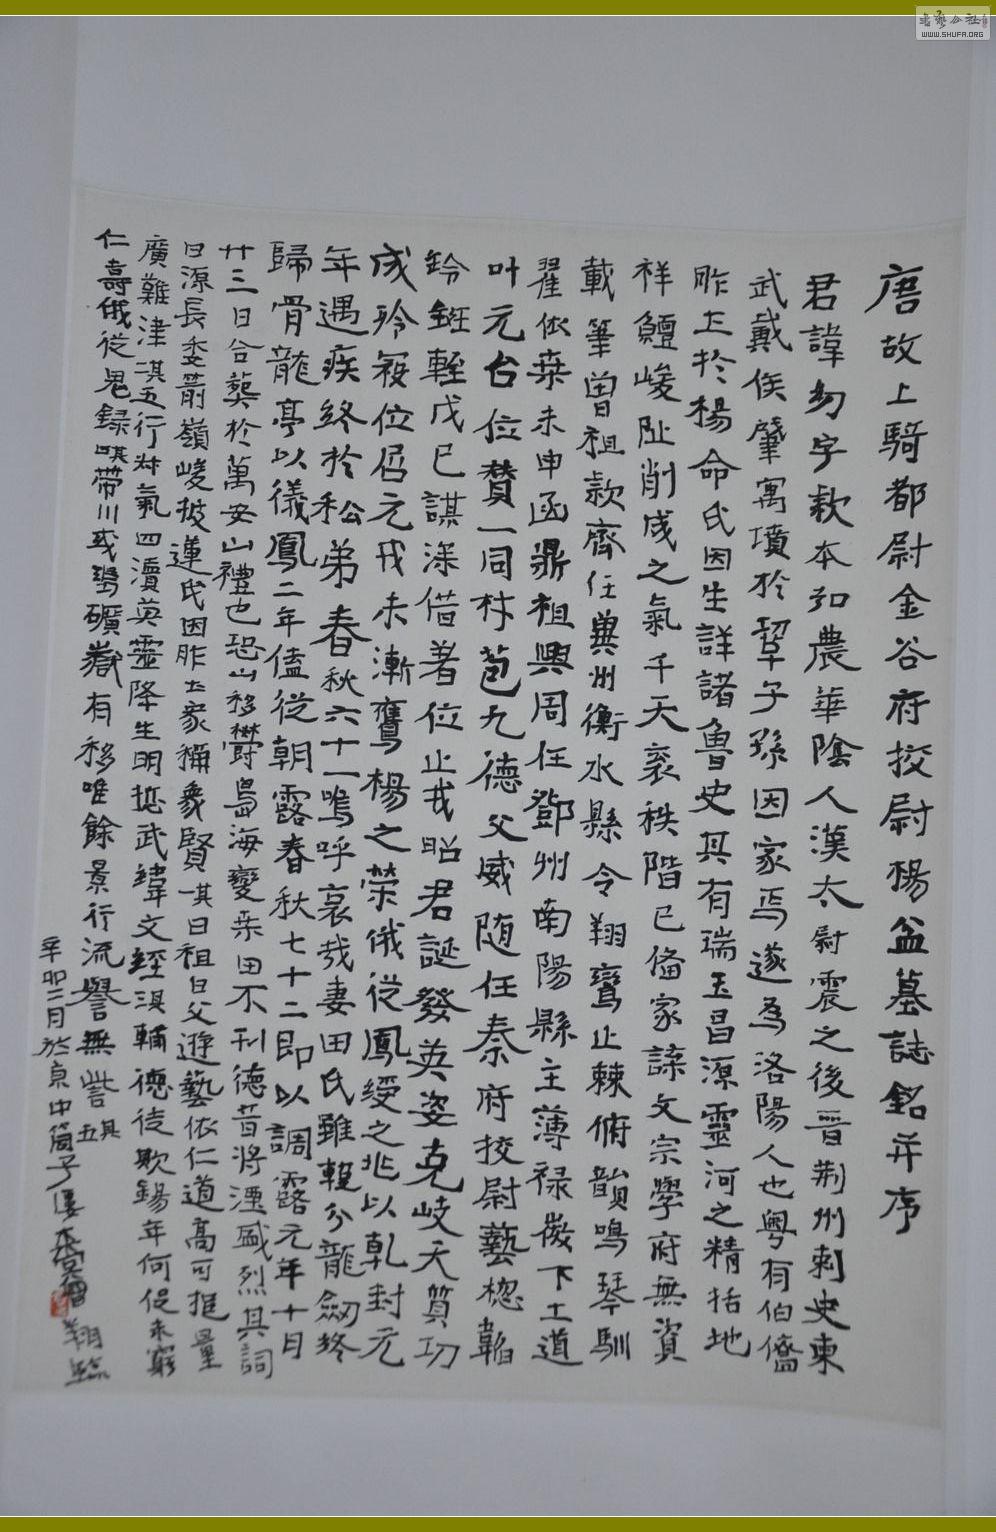 唐故上騎都尉金谷府挍尉楊盆墓誌銘并序
君諱 字 本弘農華陰人漢太尉震之後晉荆州刺史東
武戴侯肇寓墳於鞏子孫因家焉遂為洛陽人也粤有伯僑
胙土於楊命氏因生詳諸魯史其有瑞玉昌源靈河之精括地
祥鱣峻阯削成之氣千天袞秩階已俻家諜文宗學府無資
載筆曽祖款齊任兾州衡水縣令翔鸞止棘俯韻鳴琴馴
翟依桒未申函鼎祖興周任鄧州南陽縣主薄禄微下士道
叶元台位賛一同材苞九德父威随任秦府挍尉藝揔韜
鈐 輊戊巳謀深借著位止戎昭君誕發英姿克岐天質功
成 位 元戎未漸鴛楊之榮俄從鳳綬之兆以乹封元
年遇疾終於私弟春秋六十一嗚呼哀哉妻田氏雖 分龍劒終
歸骨龍亭以儀鳳二年 從朝露春秋七十二即以調露元年十月
廿三日合葬於萬安山禮也恐山移欝島海變桒田不刊德音將湮盛烈其詞
曰源長委箭嶺峻披蓮氏因胙土家稱象賢其曰祖曰父遊藝依仁道高可挹量
廣難津其五行 氣四瀆英靈降生明悊武緯文經淇輔德徒欺錫年何促未窮
仁壽俄從鬼録其帶川或 礦嶽有移唯餘景行流譽無訾其五
辛卯二月於京中 翔臨
書藝公社
WWW.SHUFA.ORG